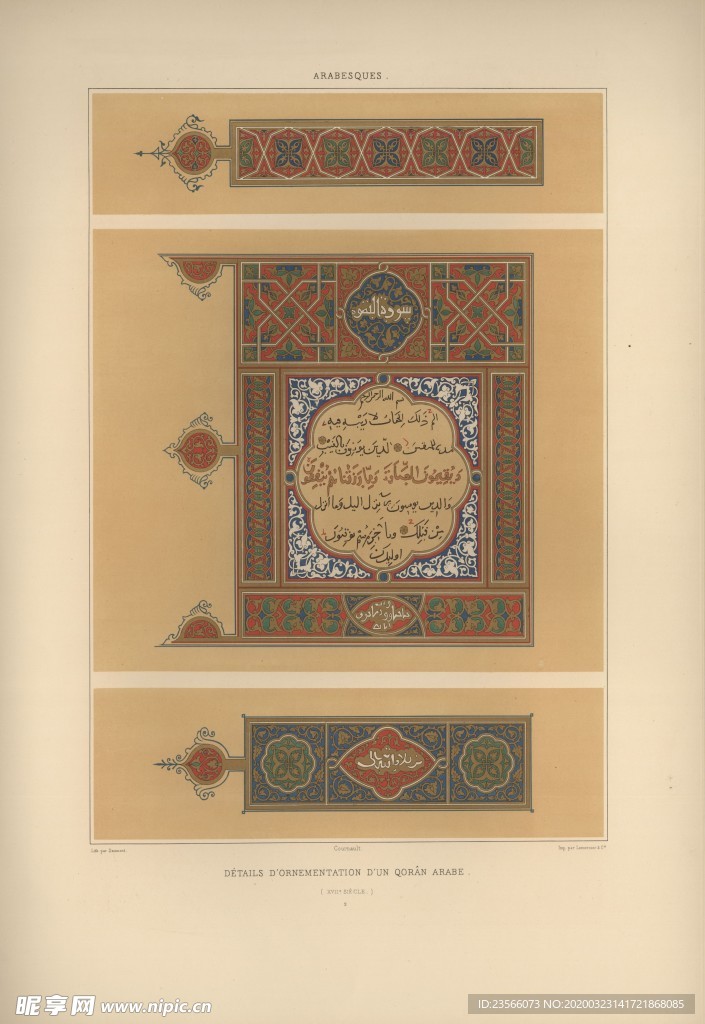 ARABESQUES.
سورة البقرة
بسم الله الرحمن الرحيم
الم ذلك الكتاب لا ريب فيه
هدى للمتقين الذين يؤمنون بالغيب
ويقيمون الصلوة ومما رزقناهم ينفقون
والذين يؤمنون بما انزل اليك وما انزل
من قبلك وبالآخرة هم يوقنون
اولئك
Lith. par Daumont.
Imp. par Lemercier & Cie
DÉTAILS D'ORNEMENTATION D'UN QORÁN ARABE.
( XVIIe SIÈCLE. )
昵享网 www.nipic.cn
ID:23566073 NO:20200323141721868085